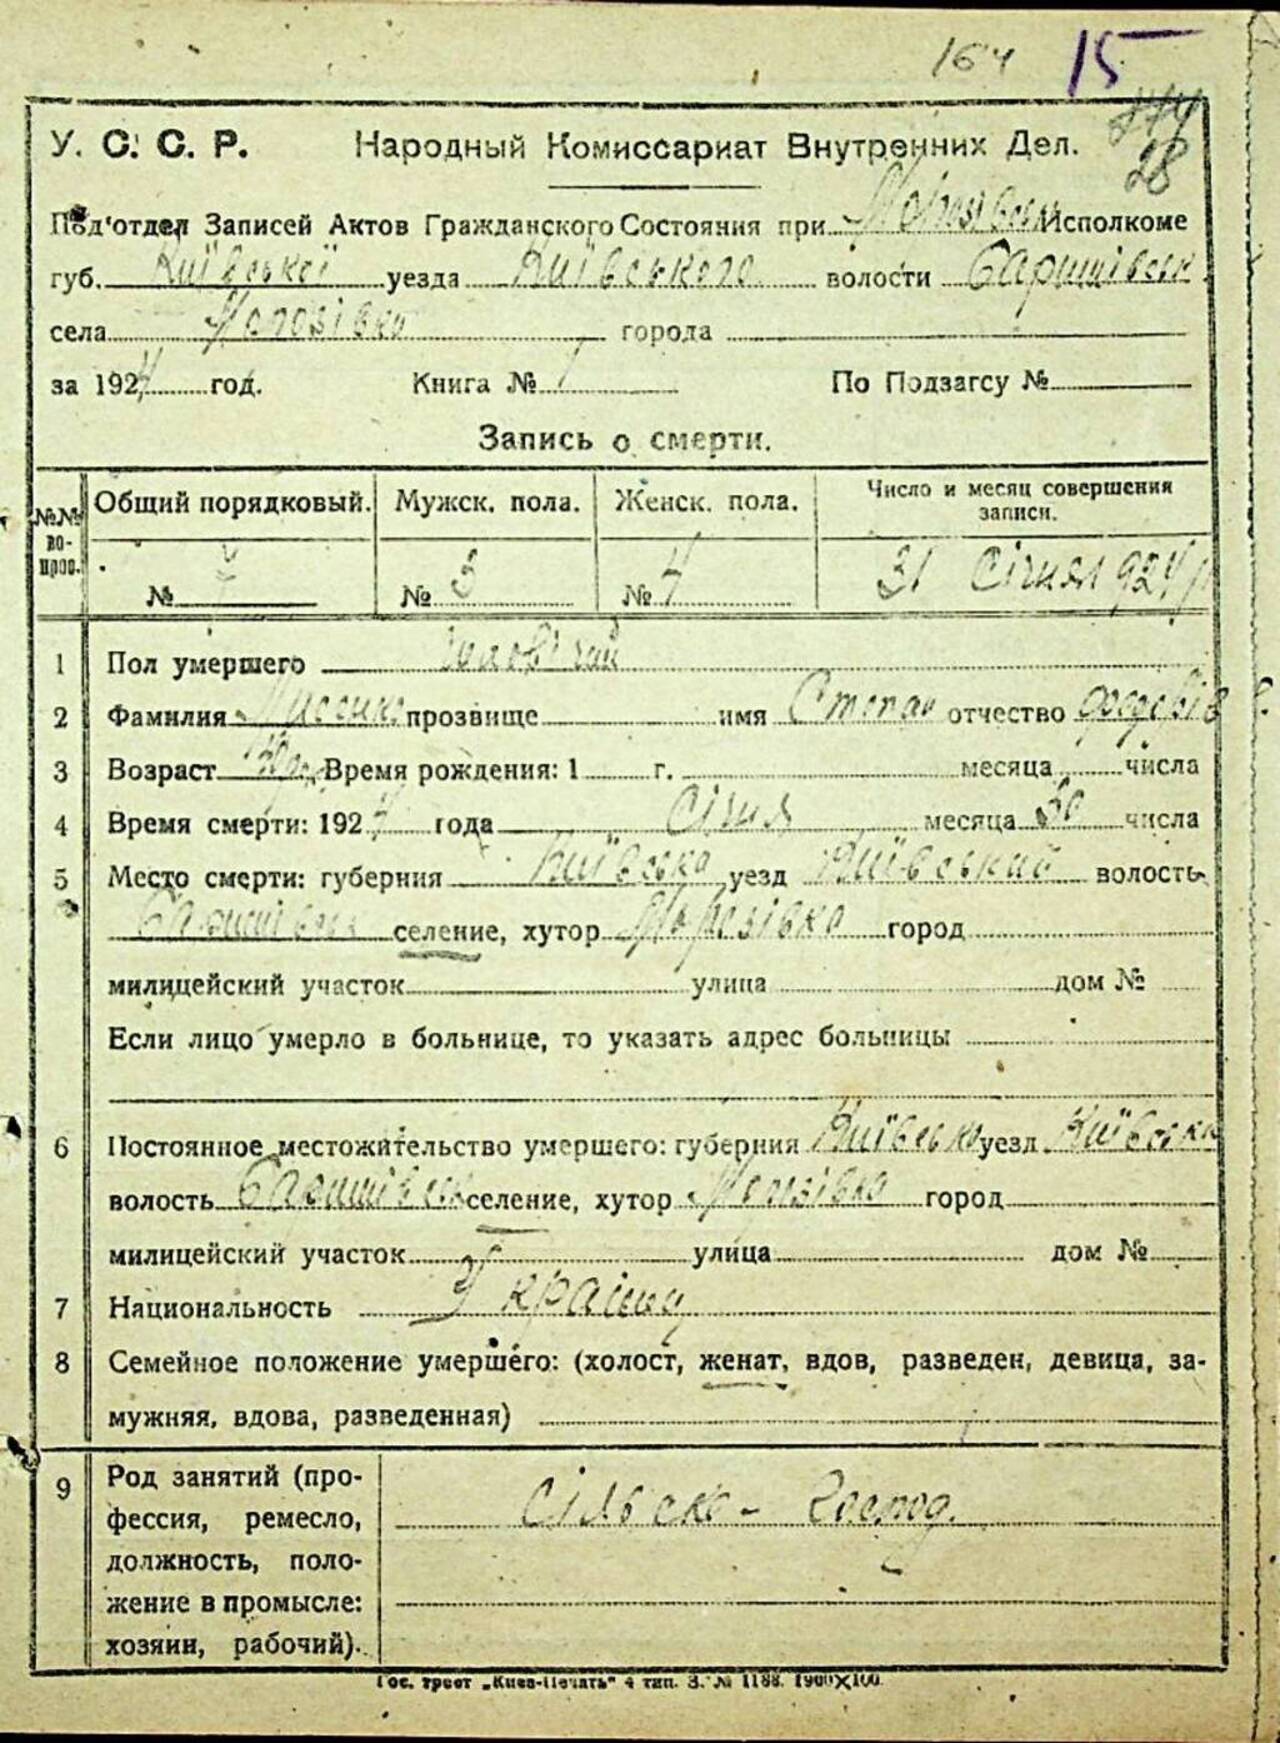 164 15
28
У. С. С. Р. Народный Комиссариат Внутренних Дел.
Под'отдел Записей Актов Гражданского Состояния при Исполкоме
губ. Київської уезда Київського волости Баришівськ
села Морозівка города
за 1924 год. Книга № 1 По Подзагсу №
Запись о смерти.
№№ вопрос. Общий порядковый. Мужск. пола. Женск. пола. Число и месяц совершения записи.
№ 7 № 3 № 4 31 Січня 924 р
1 Пол умершего чоловічий
2 Фамилия прозвище имя Степан отчество Федорів
3 Возраст Время рождения: 1 г. месяца числа
4 Время смерти: 1924 года Січня месяца 30 числа
5 Место смерти: губерния Київська уезд Київський волость
Баришівськ селение, хутор Морозівка город
милицейский участок улица дом №
Если лицо умерло в больнице, то указать адрес больницы
6 Постоянное местожительство умершего: губерния Київська уезд Київськи
волость Баришівськ селение, хутор Морозівка город
милицейский участок улица дом №
7 Национальность
8 Семейное положение умершего: (холост, женат, вдов, разведен, девица, за-
мужняя, вдова, разведенная)
9 Род занятий (про-
фессия, ремесло,
должность, поло-
жение в промысле:
хозяин, рабочий).
Сільско-господ.
Гос. трест „Киев-Печать" 4 тип. З. № 1188. 1900×100.